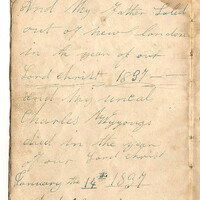 And My Father Died
out of new london
in the year of our
Lord Christ 1897
and My uncal
Charles
died in the year
of our Lord Christ
January the 14th 1897